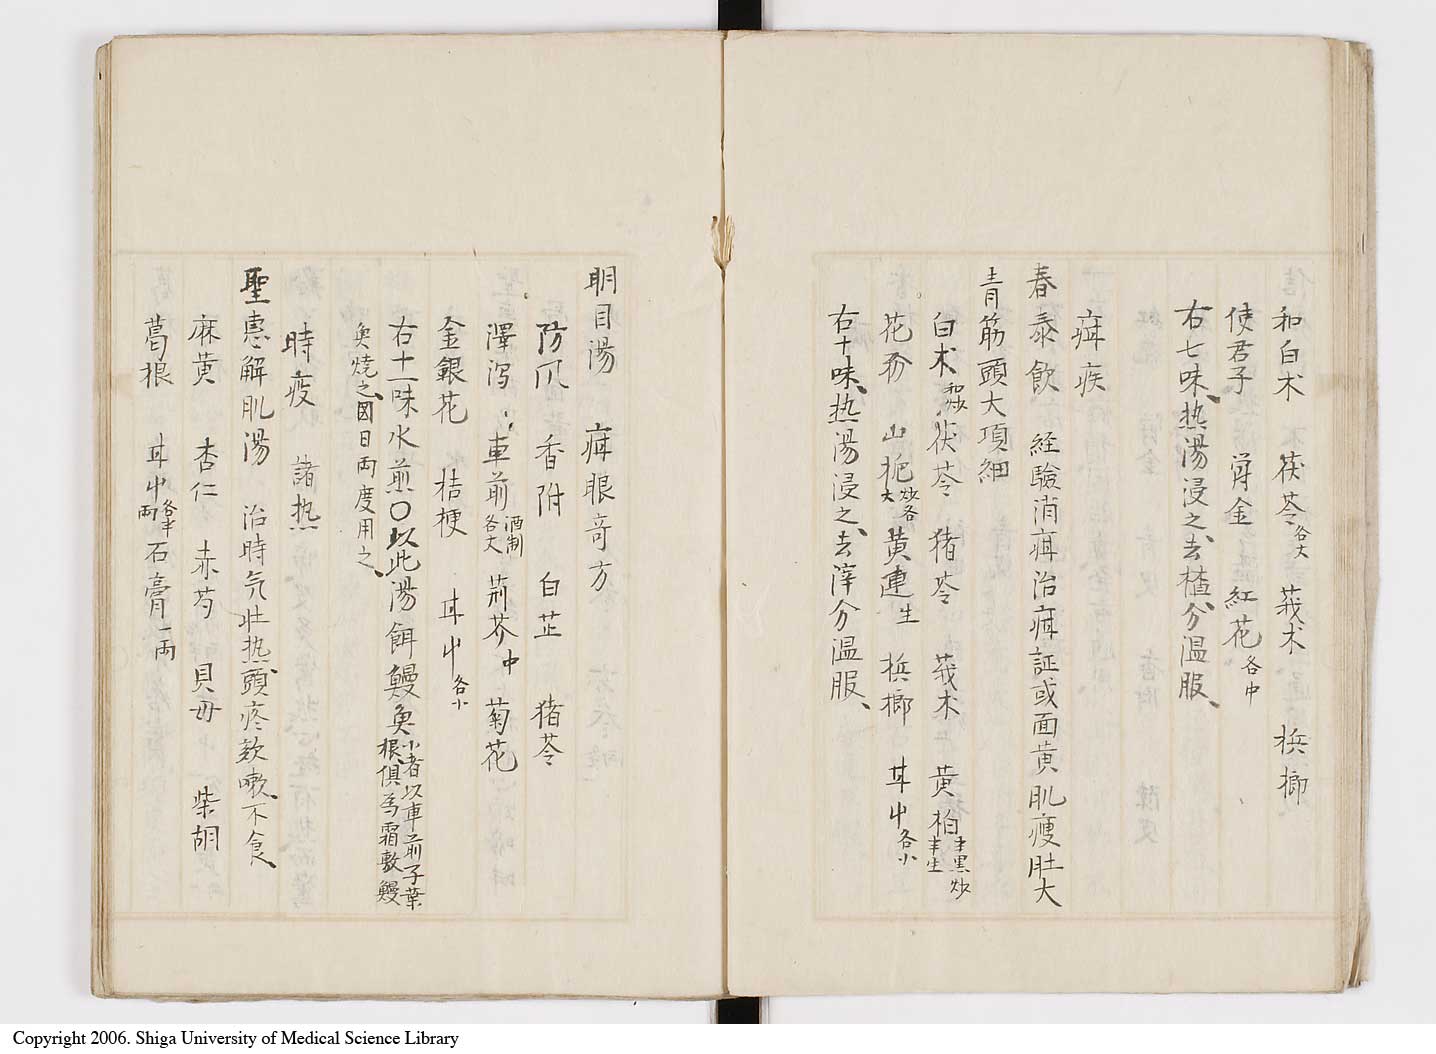 和白朮 茯苓各大 莪朮 梹榔
使君子 宿金 紅花各中
右七味、热湯浸之、去楂、分温服、
疳疾
春泰飲 経驗消疳治疳証或面黄肌痩肚大
青筋頭大項細
白朮和炒 茯苓 猪苓 莪朮 黄柏半黒炒半生
花粉 山梔炒各大 黄連生 梹榔 甘中各小
右十味、热湯浸之、去滓分温服、
明目湯 疳眼奇方
防风 香附 白芷 猪苓
澤泻 車前酒制各大 荊芥中 菊花
金銀花 桔梗 甘中各小
右十一味水煎〇以此湯餌鰻魚小者以車前子葉根俱為霜敷鰻
魚焼之、因日両度用之、
時疫 諸热
聖惠解肌湯 治時气壮热、頭疼欬嗽、不食、
麻黄 杏仁 赤芍 貝母 柴胡
葛根 甘中各半両 石膏一両
Copyright 2006. Shiga University of Medical Science Library